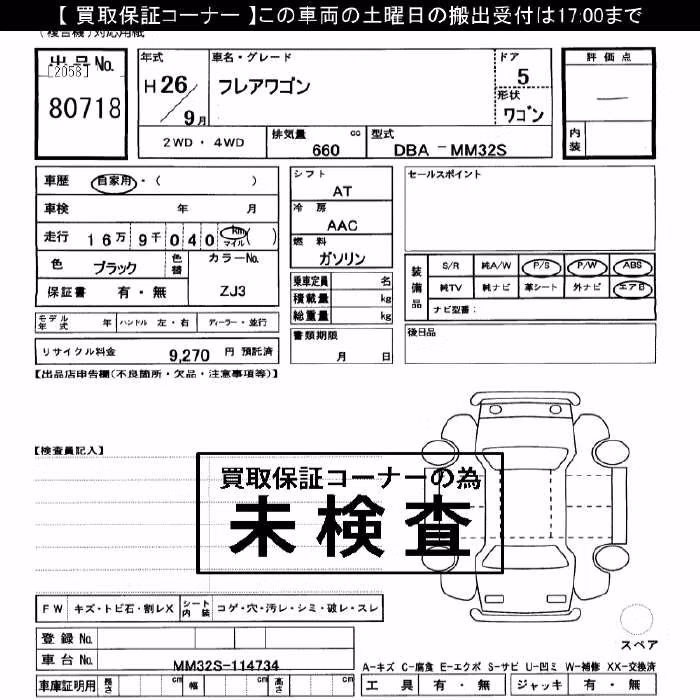 【 買取保証コーナー 】この車両の土曜日の搬出受付は17:00まで
(複合機)対応用紙
出品No.
[2058]
80718
年式
H 26
9月
車名・グレード
フレアワゴン
ドア
5
形状
ワゴン
評価点
―
内装
2WD・4WD
排気量 cc
660
型式
DBA －MM32S
車歴 自家用・( )
車検 年 月
走行 16万 9千 040 km マイル ( )
色 ブラック 色替
カラーNo.
ZJ3
保証書 有・無
シフト
AT
冷房
AAC
燃料
ガソリン
乗車定員 名
積載量 kg
総重量 kg
書類期限
月 日
セールスポイント
装備品
S/R 純A/W P/S P/W ABS
純TV 純ナビ 革シート 外ナビ エアB
ナビ型番:
後日品
モデル年式 年 ハンドル 左・右 ディーラー・並行
リサイクル料金 9,270 円 預託済
【出品店申告欄(不良箇所・欠品・注意事項等)】
【検査員記入】
買取保証コーナーの為
未検査
FW キズ・トビ石・割レX シート内装 コゲ・穴・汚レ・シミ・破レ・スレ
登録No.
車台No. MM32S-114734
車庫証明用 長さ cm 幅 cm 高さ cm
スペア
A-キズ C-腐食 E-エクボ S-サビ U-凹ミ W-補修 XX-交換済
工具 有・無 ジャッキ 有・無